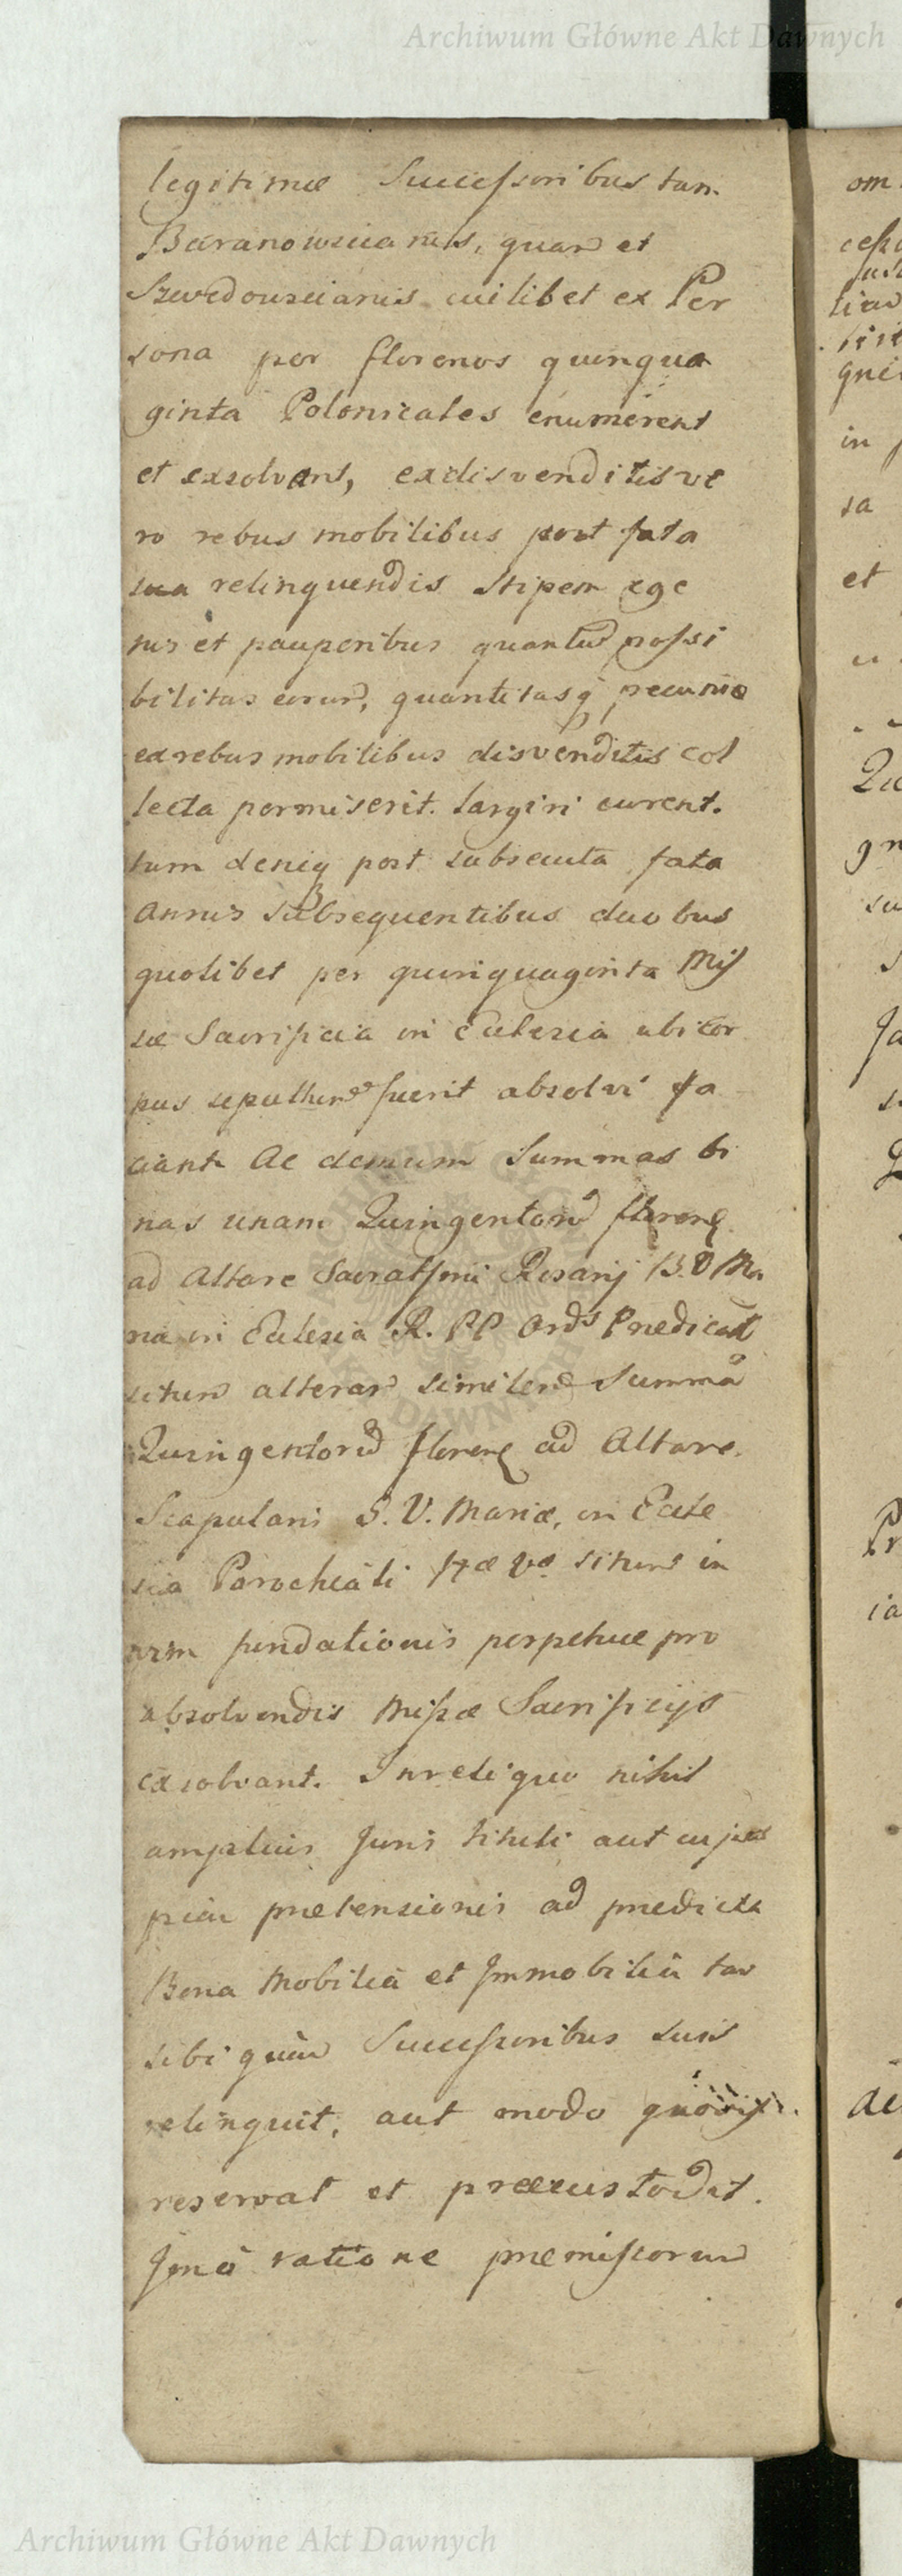 Archiwum Główne Akt Dawnych
legitimæ Successoribus tam
Baranowscianis, quam et
Szwedowscianis cuilibet ex Per
sona per florenos quinqua
ginta Polonicales enumerent
et exsolvant, exdisvenditis ve
ro rebus mobilibus post fata
sua relinquendis Stipem ege
nis et pauperibus quantum possi
bilitas eorum, quantitasq pecuniæ
ex rebus mobilibus disvenditis col
lecta permiserit. largiri curent.
tum deniq post subsecuta fata
Annis Subsequentibus duobus
quolibet per quinquaginta Mis
sæ Sacrificia in Eclesia ubi cor
pus sepultum fuerit absolvi fa
ciant. Ac demum Summas bi
nas unam Quingentorum floren
ad Altare Sacratssmi Rosarij B.V Ma
riæ in Eclesia R. PP Ords Predicat
situm alteram similem Summa
Quingentorum floren ad Altare
Scapularis B. V. Mariæ, in Ecle
sia Parochiali situm in
vim fundationis perpetuæ pro
absolvendis Missæ Sacrificijs
exsolvant. In reliquo nihil
amplius Juris tituli aut cujus
piam pretensionis ad predicta
Bona Mobilia et Immobilia tam
sibi quàm Successoribus suis
relinquit, aut modo quovis
reservat et præcustodit.
Imò ratione premissorum
Archiwum Główne Akt Dawnych